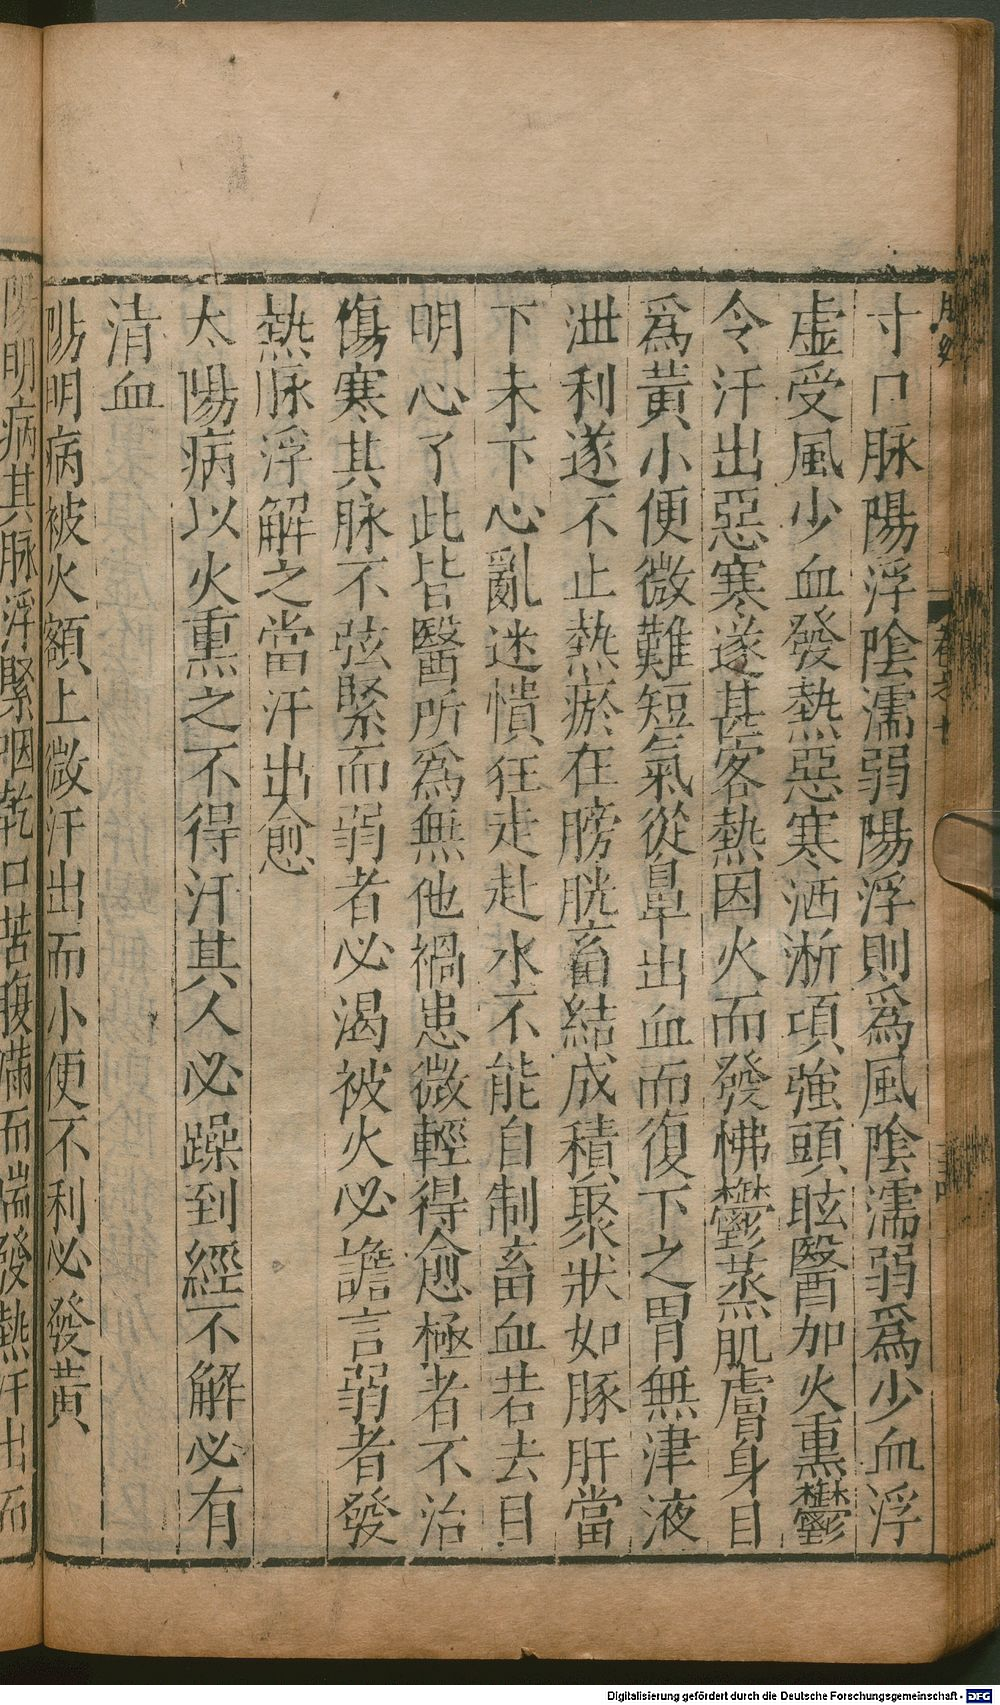 寸口脉陽浮陰濡弱陽浮則爲風陰濡弱爲少血浮
虚受風少血發熱惡寒洒淅項強頭眩醫加火熏鬱
令汗出惡寒遂甚客熱因火而發怫鬱蒸肌膚身目
爲黃小便微難短氣從鼻出血而復下之胃無津液
泄利遂不止熱瘀在膀胱畜結成積聚狀如豚肝當
下未下心亂迷憒狂走赴水不能自制畜血若去目
明心了此皆醫所爲無他禍患微輕得愈極者不治
傷寒其脉不弦緊而弱者必渴被火必譫言弱者發
熱脉浮解之當汗出愈
太陽病以火熏之不得汗其人必躁到經不解必有
清血
陽明病被火額上微汗出而小便不利必發黃
陽明病其脉浮緊咽乾口苦腹滿而喘發熱汗出
卷之十
Digitalisierung gefördert durch die Deutsche Forschungsgemeinschaft - DFG